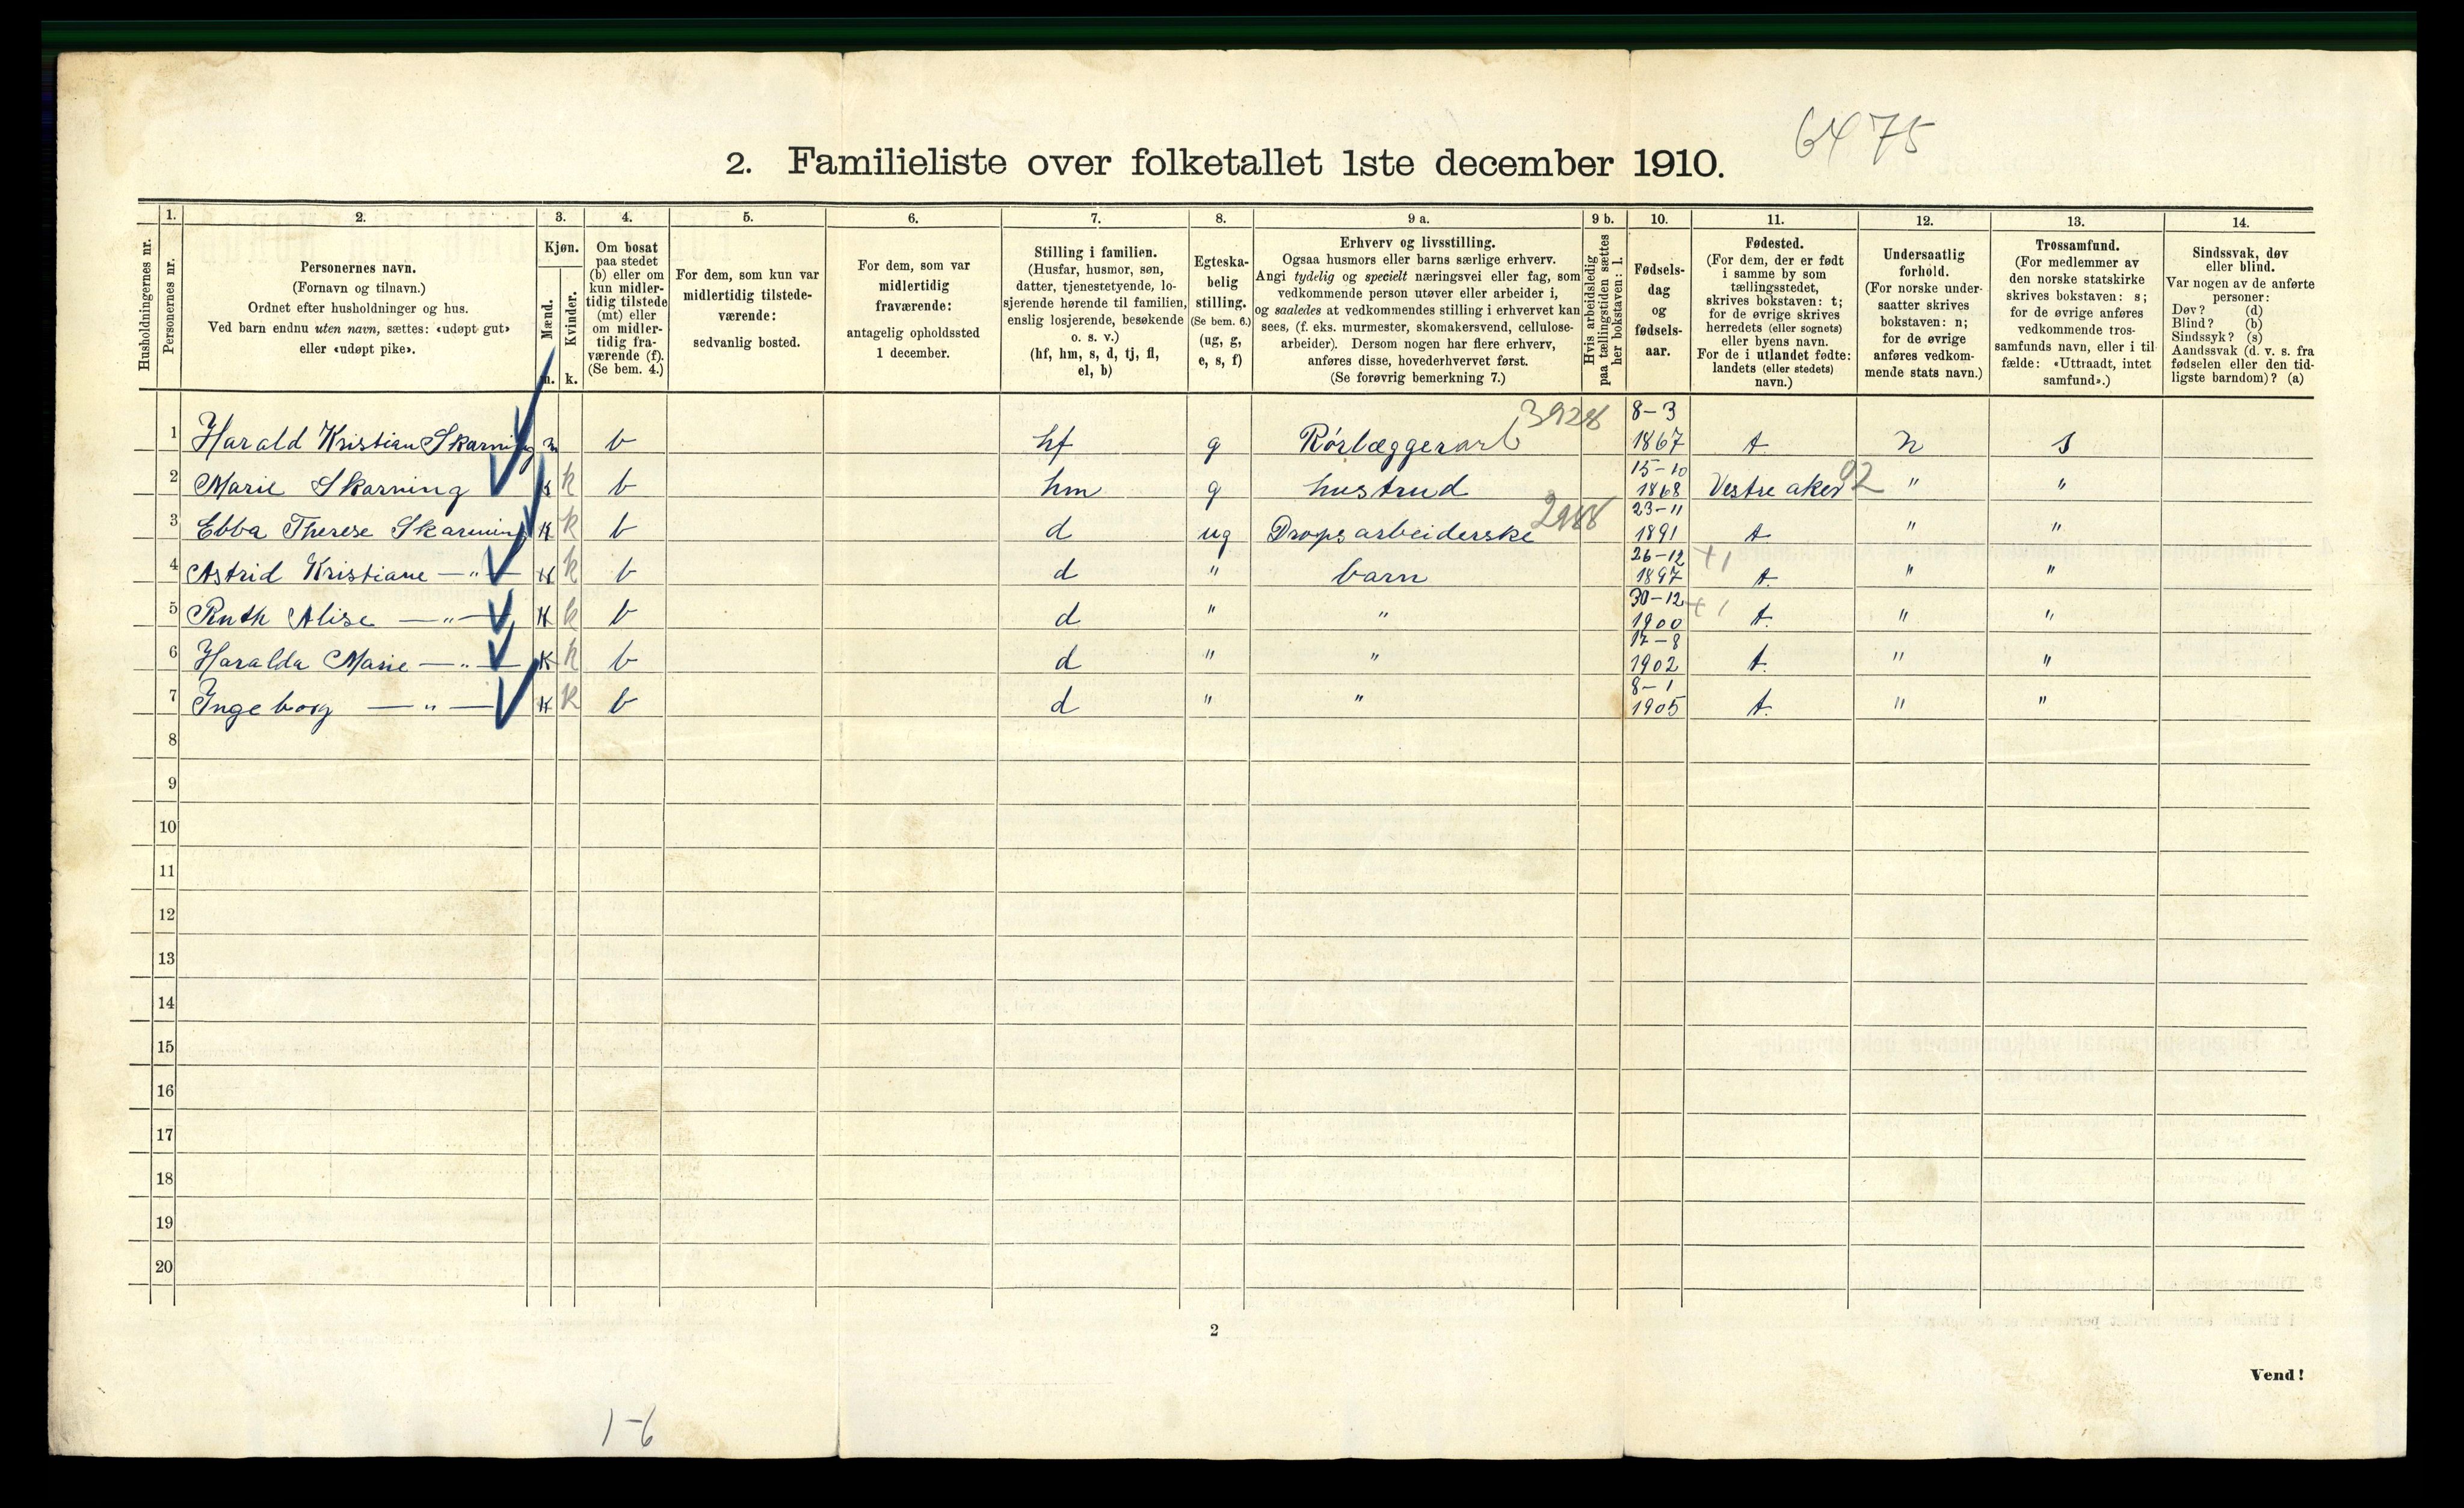 6475
2. Familieliste over folketallet 1ste december 1910.
Husholdningernes nr.
1. Personernes nr.
2. Personernes navn.
(Fornavn og tilnavn.)
Ordnet efter husholdninger og hus.
Ved barn endnu uten navn, sættes: «udøpt gut»
eller «udøpt pike».
3. Kjøn.
Mænd. m.
Kvinder. k.
4. Om bosat
paa stedet
(b) eller om
kun midler-
tidig tilstede
(mt) eller
om midler-
tidig fra-
værende (f).
(Se bem. 4.)
5. For dem, som kun var
midlertidig tilstede-
værende:
sedvanlig bosted.
6. For dem, som var
midlertidig
fraværende:
antagelig opholdssted
1 december.
7. Stilling i familien.
(Husfar, husmor, søn,
datter, tjenestetyende, lo-
sjerende hørende til familien,
enslig losjerende, besøkende
o. s. v.)
(hf, hm, s, d, tj, fl,
el, b)
8. Egteska-
belig
stilling.
(Se bem. 6.)
(ug, g,
e, s, f)
9 a. Erhverv og livsstilling.
Ogsaa husmors eller barns særlige erhverv.
Angi tydelig og specielt næringsvei eller fag, som
vedkommende person utøver eller arbeider i,
og saaledes at vedkommendes stilling i erhvervet kan
sees, (f. eks. murmester, skomakersvend, cellulose-
arbeider). Dersom nogen har flere erhverv,
anføres disse, hovederhvervet først.
(Se forøvrig bemerkning 7.)
9 b. Hvis arbeidsledig
paa tællingstiden sættes
her bokstaven: l.
10. Fødsels-
dag
og
fødsels-
aar.
11. Fødested.
(For dem, der er født
i samme by som
tællingsstedet,
skrives bokstaven: t;
for de øvrige skrives
herredets (eller sognets)
eller byens navn.
For de i utlandet fødte:
landets (eller stedets)
navn.)
12. Undersaatlig
forhold.
(For norske under-
saatter skrives
bokstaven: n;
for de øvrige
anføres vedkom-
mende stats navn.)
13. Trossamfund.
(For medlemmer av
den norske statskirke
skrives bokstaven: s;
for de øvrige anføres
vedkommende tros-
samfunds navn, eller i til-
fælde: «Uttraadt, intet
samfund».)
14. Sindssvak, døv
eller blind.
Var nogen av de anførte
personer:
Døv? (d)
Blind? (b)
Sindssyk? (s)
Aandssvak (d. v. s. fra
fødselen eller den tid-
ligste barndom)? (a)
1 Harald Kristian Skarning m b hf g Rørlæggerarb 3928 8-3 1867 t n s
2 Marie Skarning k b hm g hustrud 15-10 1868 Vestre aker 92 " "
3 Ebba Therese Skarning k k b d ug Dropsarbeiderske 23-11 1891 t " "
4 Astrid Kristiane —"— k k b d " barn 26-12 1897 +1 t. " "
5 Ruth Alise —"— k k b d " " 30-12 1900 +1 t. " "
6 Haralda Marie —"— k k b d " " 17-8 1902 t. " "
7 Ingeborg —"— k k b d " " 8-1 1905 t. " "
8
9
10
11
12
13
14
15
16
17
18
19
20
2
Vend!
1-6